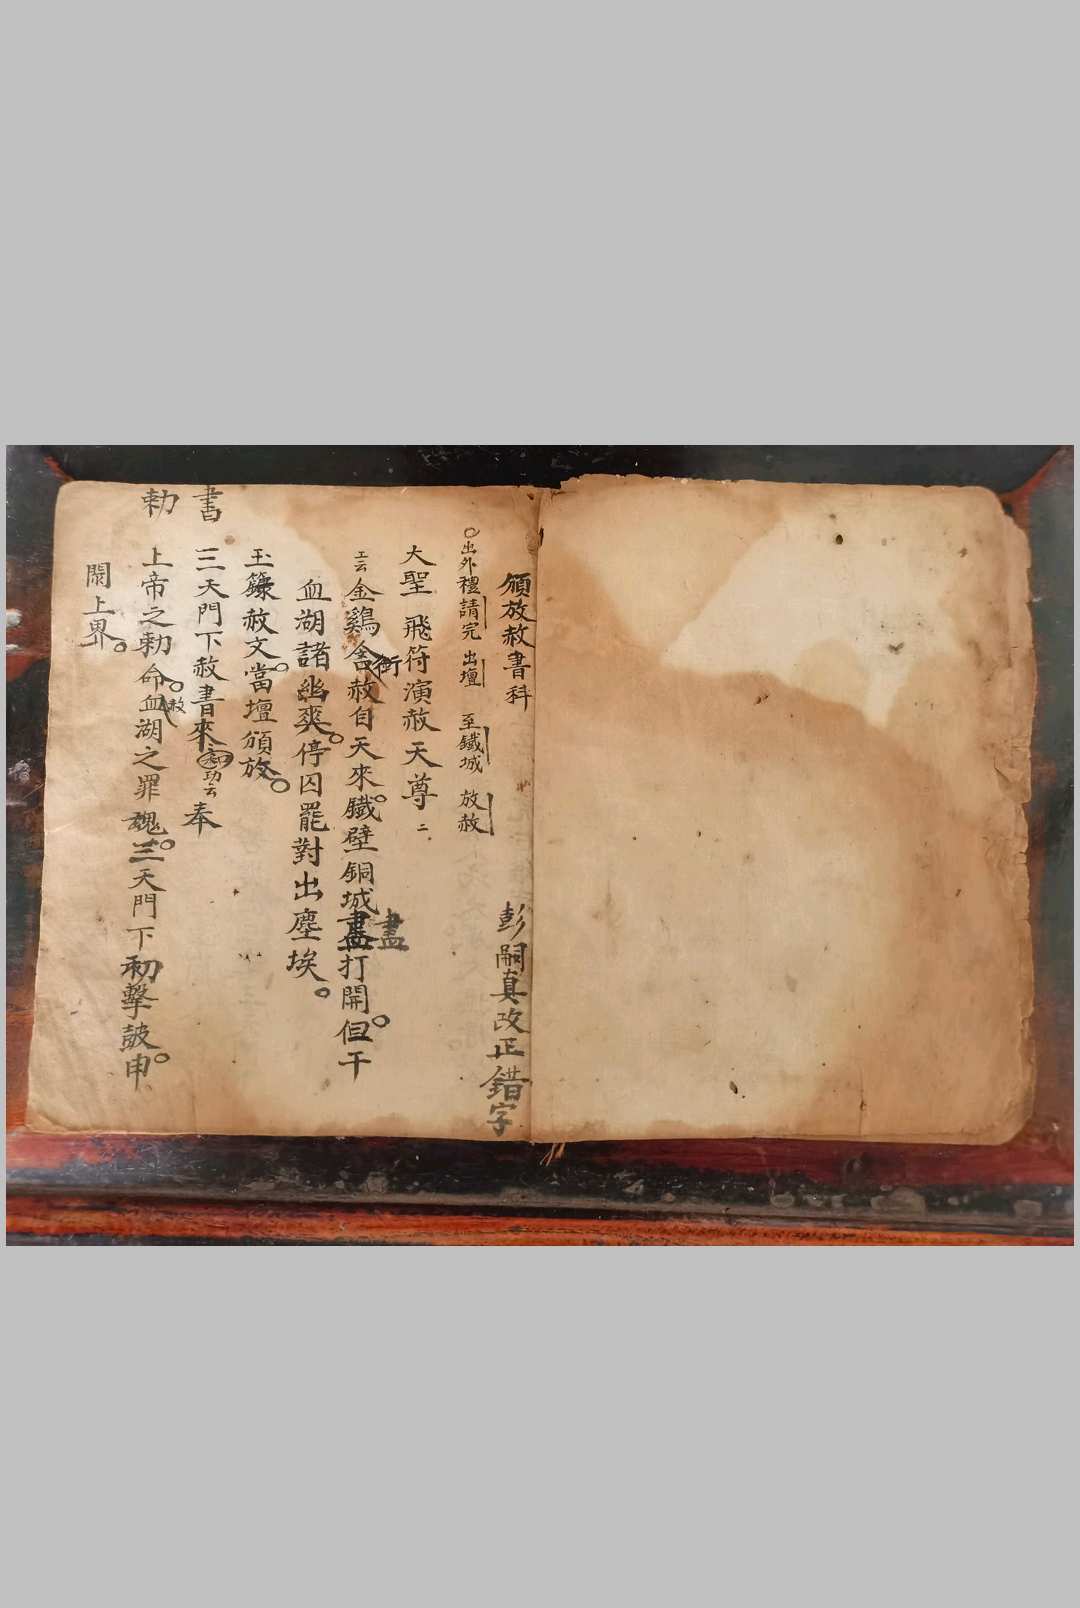 頒放赦書科 彭嗣真改正錯字
出外禮請完 出壇 至鐵城 放赦
大聖 飛符演赦天尊 二
工云金鷄舍銜赦自天來鐵壁銅城盡盡打開但干
血湖諸幽爽停囚罷對出塵埃
玉籙赦文當壇頒放
書三天門下赦書來功云奉
勅上帝之勅命赦血湖之罪魂三天門下初擊皷申
聞上界